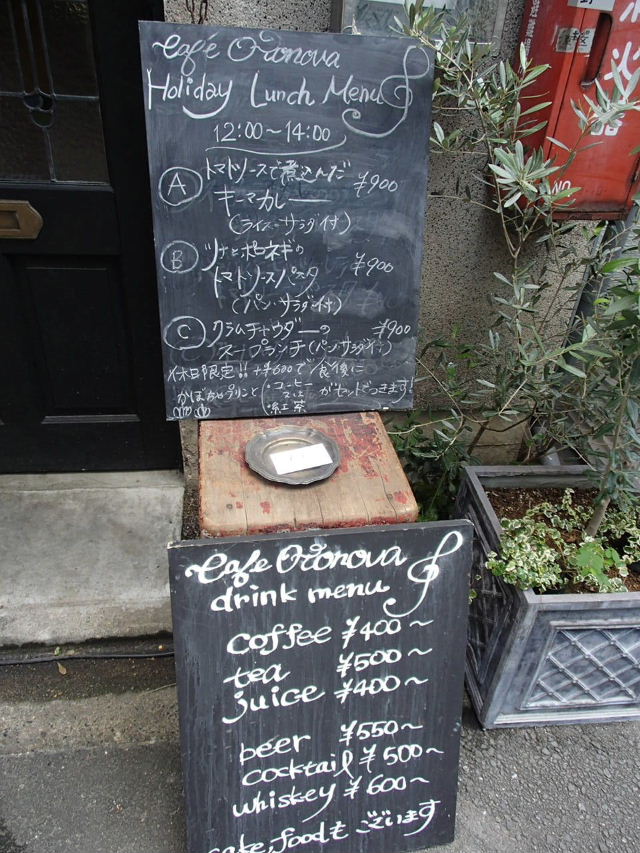 Café Oronova
Holiday Lunch Menu
12:00〜14:00
A トマトソースで煮込んだ ¥900
キーマカレー
(ライス・サラダ付)
B ツナとポロネギの ¥900
トマトソースパスタ
(パン・サラダ付)
C クラムチャウダーの ¥900
スープランチ(パン・サラダ付)
休日限定!! +¥600で食後に
かぼちゃプリンと ・コーヒー 又は ・紅茶 がセットでつきます!
Cafe Oronova
drink menu
coffee ¥400〜
tea ¥500〜
juice ¥400〜
beer ¥550〜
cocktail ¥500〜
whiskey ¥600〜
cake, foodも ございます
NO